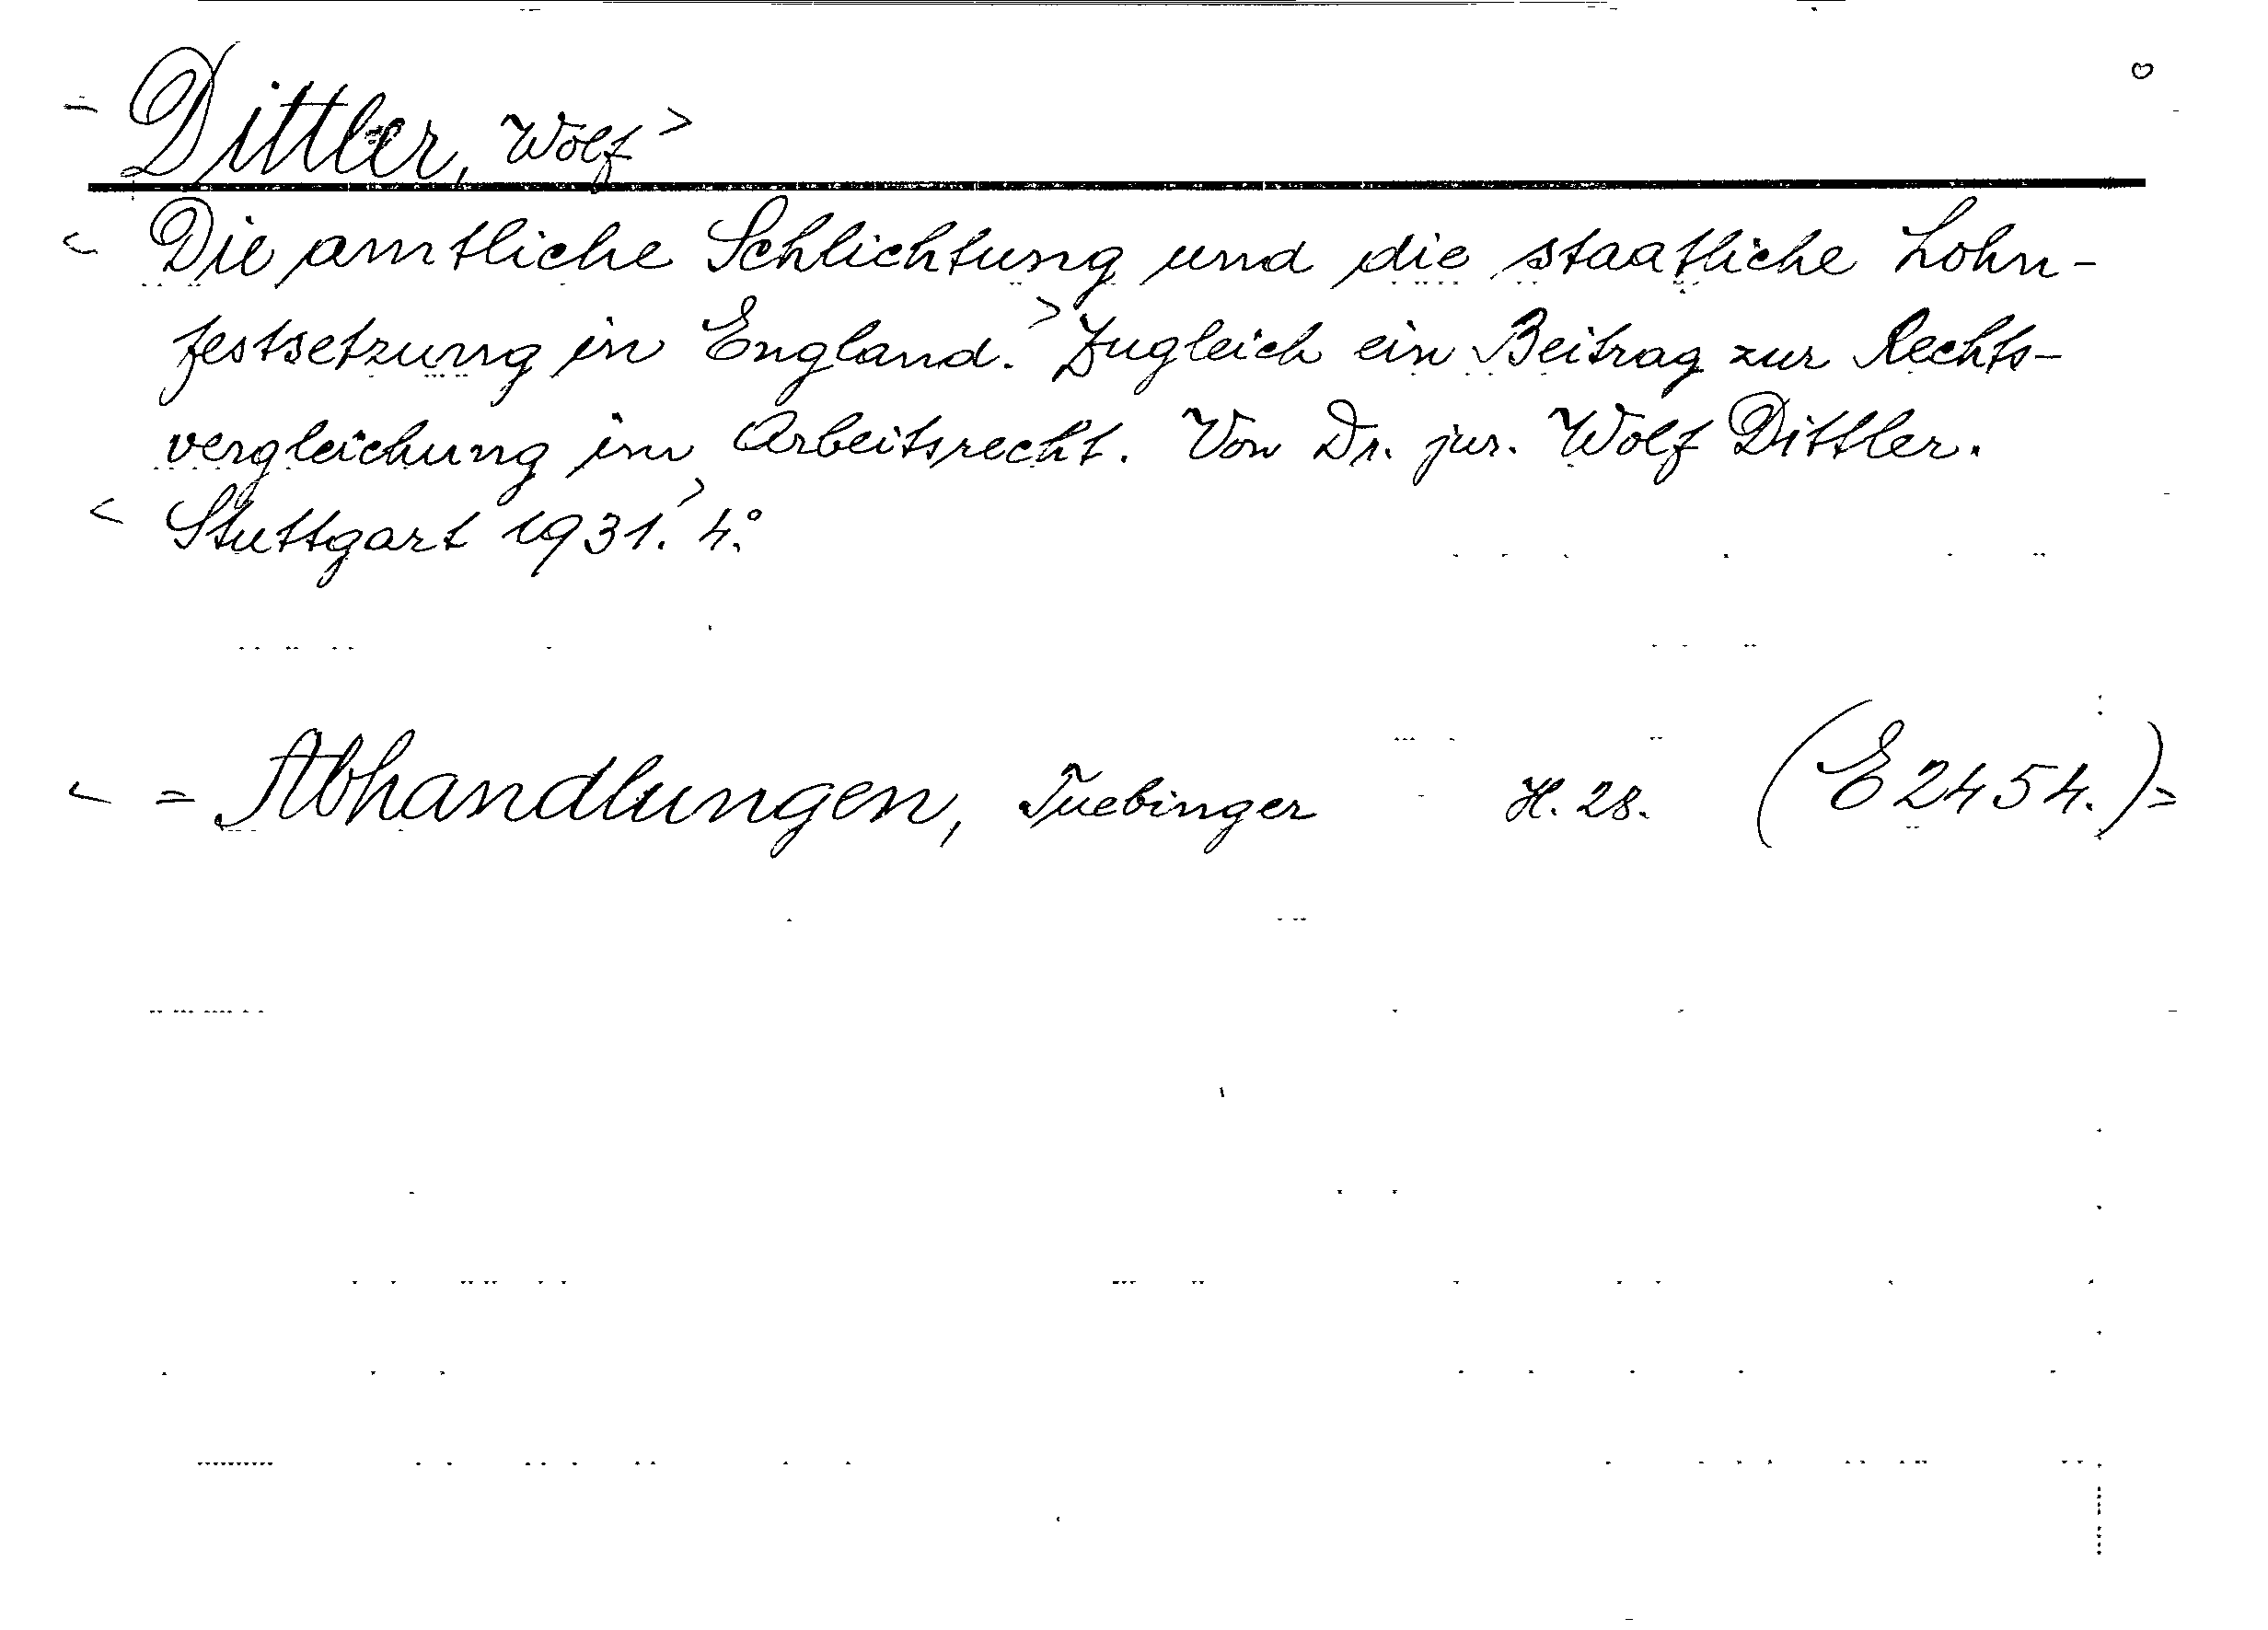 - Dittler, Wolf >
< Die amtliche Schlichtung und die staatliche Lohn-
festsetzung in England.> Zugleich ein Beitrag zur Rechts-
vergleichung im Arbeitsrecht. Von Dr. jur. Wolf Dittler.
< Stuttgart 1931.> 4°.
< = Abhandlungen, Tuebinger H. 28. (E 2454.) >